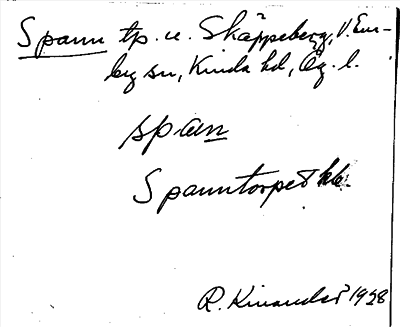 Spann tp. u. Skäppeberg, V. En-
by sn, Kinda hd, Ög. l.
span
Spanntorpet kb.
R. Kinander 1928